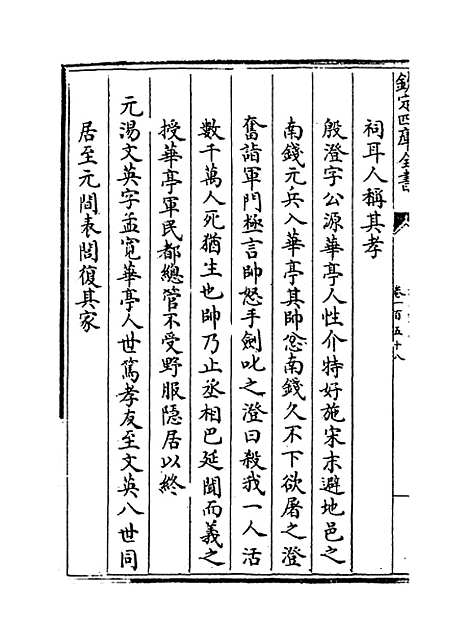 欽定四庫全書
卷一百五十八
祠耳人稱其孝
殷澄字公源華亭人性介特好施宋末避地邑之
南錢元兵入華亭其帥忿南錢久不下欲屠之澄
奮詣軍門極言帥怒手劍叱之澄曰殺我一人活
數千萬人死猶生也帥乃止丞相巴延聞而義之
授華亭軍民都總管不受野服隱居以終
元湯文英字孟寛華亭人世篤孝友至文英八世同
居至元間表閭復其家